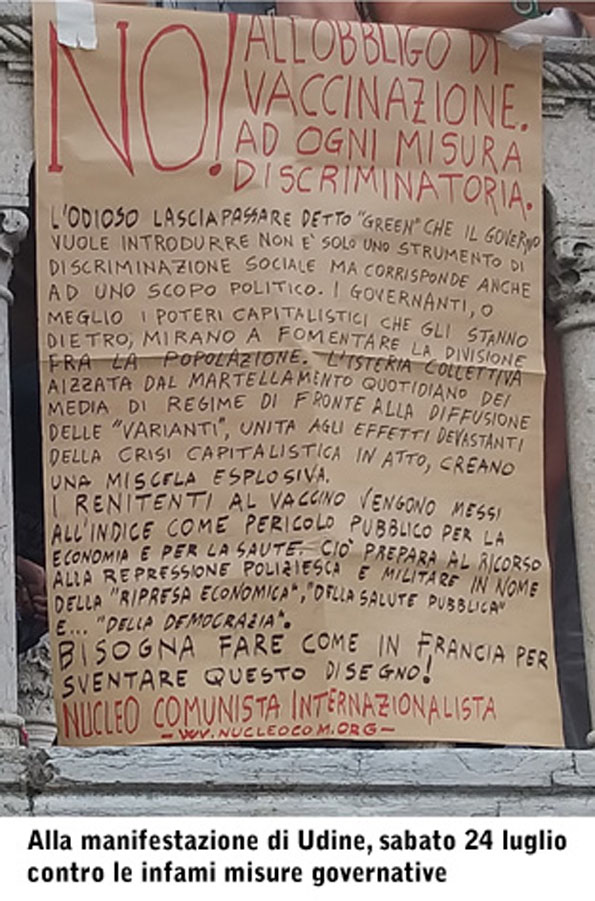 NO! ALL'OBBLIGO DI
VACCINAZIONE.
AD OGNI MISURA
DISCRIMINATORIA.
L'ODIOSO LASCIAPASSARE DETTO "GREEN" CHE IL GOVERNO
VUOLE INTRODURRE NON E' SOLO UNO STRUMENTO DI
DISCRIMINAZIONE SOCIALE MA CORRISPONDE ANCHE
AD UNO SCOPO POLITICO. I GOVERNANTI, O
MEGLIO I POTERI CAPITALISTICI CHE GLI STANNO
DIETRO, MIRANO A FOMENTARE LA DIVISIONE
FRA LA POPOLAZIONE. L'ISTERIA COLLETTIVA
AIZZATA DAL MARTELLAMENTO QUOTIDIANO DEI
MEDIA DI REGIME DI FRONTE ALLA DIFFUSIONE
DELLE "VARIANTI", UNITA AGLI EFFETTI DEVASTANTI
DELLA CRISI CAPITALISTICA IN ATTO, CREANO
UNA MISCELA ESPLOSIVA.
I RENITENTI AL VACCINO VENGONO MESSI
ALL'INDICE COME PERICOLO PUBBLICO PER LA
ECONOMIA E PER LA SAUTE. CIÒ PREPARA AL RICORSO
ALLA REPRESSIONE POLIZIESCA E MILITARE IN NOME
DELLA "RIPRESA ECONOMICA", "DELLA SALUTE PUBBLICA"
E... "DELLA DEMOCRAZIA".
BISOGNA FARE COME IN FRANCIA PER
SVENTARE QUESTO DISEGNO!
NUCLEO COMUNISTA INTERNAZIONALISTA
- WV.NUCLEOCOM.ORG -
Alla manifestazione di Udine, sabato 24 luglio
contro le infami misure governative